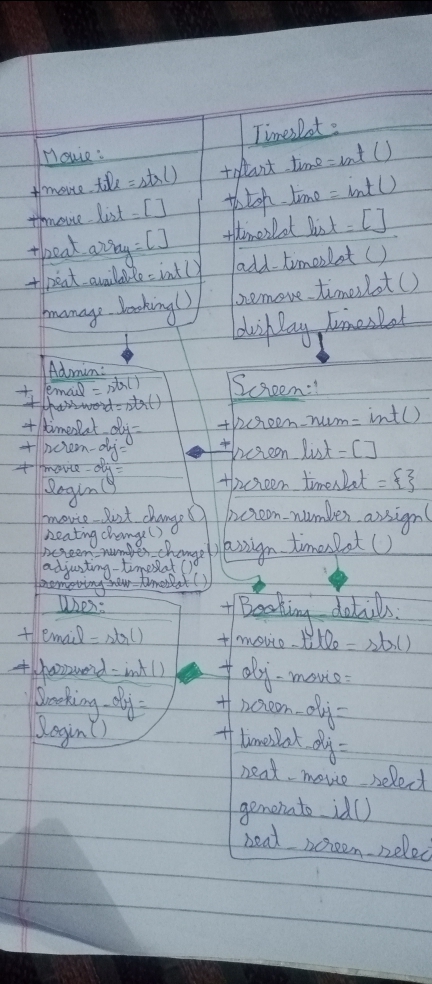 Movie:
+ movie_title = str()
+ movie_list = []
+ seat_array = []
+ seat_available = int()
manage_booking()
Timeslot:
+ start_time = int()
+ stop_time = int()
+ timeslot_list = []
add_timeslot()
remove_timeslot()
display_timeslot
Admin:
+ email = str()
+ password = str()
+ timeslot_obj =
+ screen_obj =
+ movie_obj =
login()
movie_list_change()
seating change()
screen_number_change()
adjusting_timeslot()
removing_new_timeslot()
Screen:
+ screen_num = int()
+ screen list = []
+ screen timeslot = {}
screen_number_assign(
assign_timeslot()
User:
+ email = str()
+ password = int()
booking_obj =
login()
+ Booking details:
+ movie_title = str()
+ obj_movie =
+ screen_obj =
+ timeslot_obj =
seat_movie_select
generate_id()
seat_screen_selec